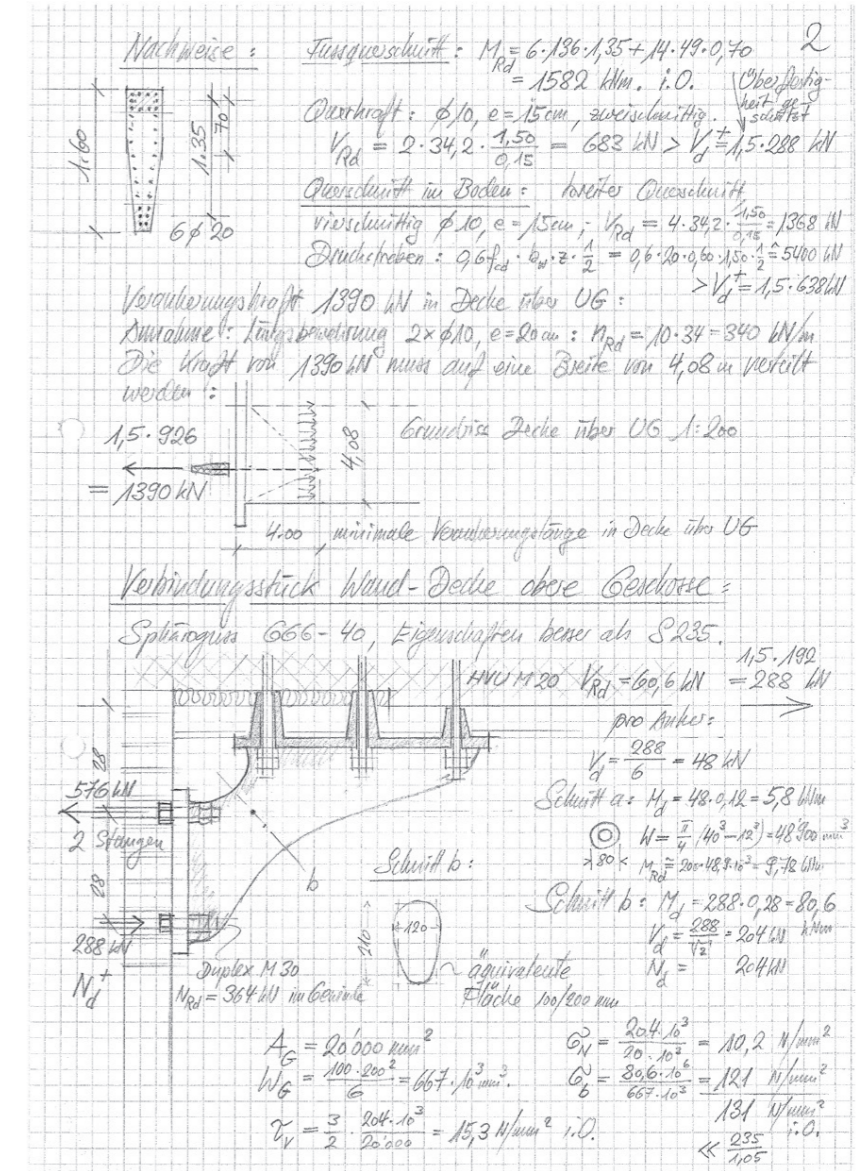 2
Nachweise :
Fussquerschnitt : M_Rd = 6·136·1,35 + 14·49·0,70
= 1582 kNm. i.O.
Überfestig-
heit ge-
schätzt
Querkraft : ϕ10, e = 15cm, zweischnittig.
V_Rd = 2·34,2 · 1,50/0,15 = 683 kN > V_d^+ = 1,5·288 kN
1.60
1.35
70
6ϕ20
Querschnitt im Boden : breiter Querschnitt
vierschnittig ϕ10, e = 15cm ; V_Rd = 4·34,2 · 1,50/0,15 = 1368 kN
Druckstreben : 0,6 f_cd · b_w · z · 1/2 = 0,6·20·0,60·1,50 · 1/2 ≙ 5400 kN
> V_d^+ = 1,5·638 kN
Verankerungskraft 1390 kN in Decke über UG :
Annahme : Längsbewehrung 2×ϕ10, e=20cm : n_Rd = 10·34 = 340 kN/m
Die Kraft von 1390 kN muss auf eine Breite von 4,08 m verteilt
werden :
1,5·926
= 1390 kN
4,08
Grundriss Decke über UG 1:200
4.00
minimale Verankerungslänge in Decke über UG
Verbindungsstück Wand-Decke obere Geschosse :
Sphäroguss GGG-40, Eigenschaften besser als S235.
HVU M20 V_Rd = 60,6 kN
1,5·192
= 288 kN
pro Anker :
V_d = 288/6 = 48 kN
28
576 kN
2 Stangen
28
288 kN
N_d^+
b
Schnitt a : M_d = 48·0,12 = 5,8 kNm
W = π/4 (40³ − 12³) = 48'900 mm³
80
M_Rd ≅ 200·48,9·10³ = 9,78 kNm
Schnitt b :
120
210
Schnitt b : M_d = 288·0,28 = 80,6 kNm
V_d = 288/√2 = 204 kN
N_d = 204 kN
Duplex M30
N_Rd = 364 kN im Gewinde
äquivalente
Fläche 100/200 mm
A_G = 20'000 mm²
W_G = 100·200²/6 = 667·10³ mm³.
τ_V = 3/2 · 204·10³/20'000 = 15,3 N/mm² i.O.
σ_N = 204·10³/20·10³ = 10,2 N/mm²
σ_b = 80,6·10⁶/667·10³ = 121 N/mm²
131 N/mm²
i.O.
≪ 235/1,05